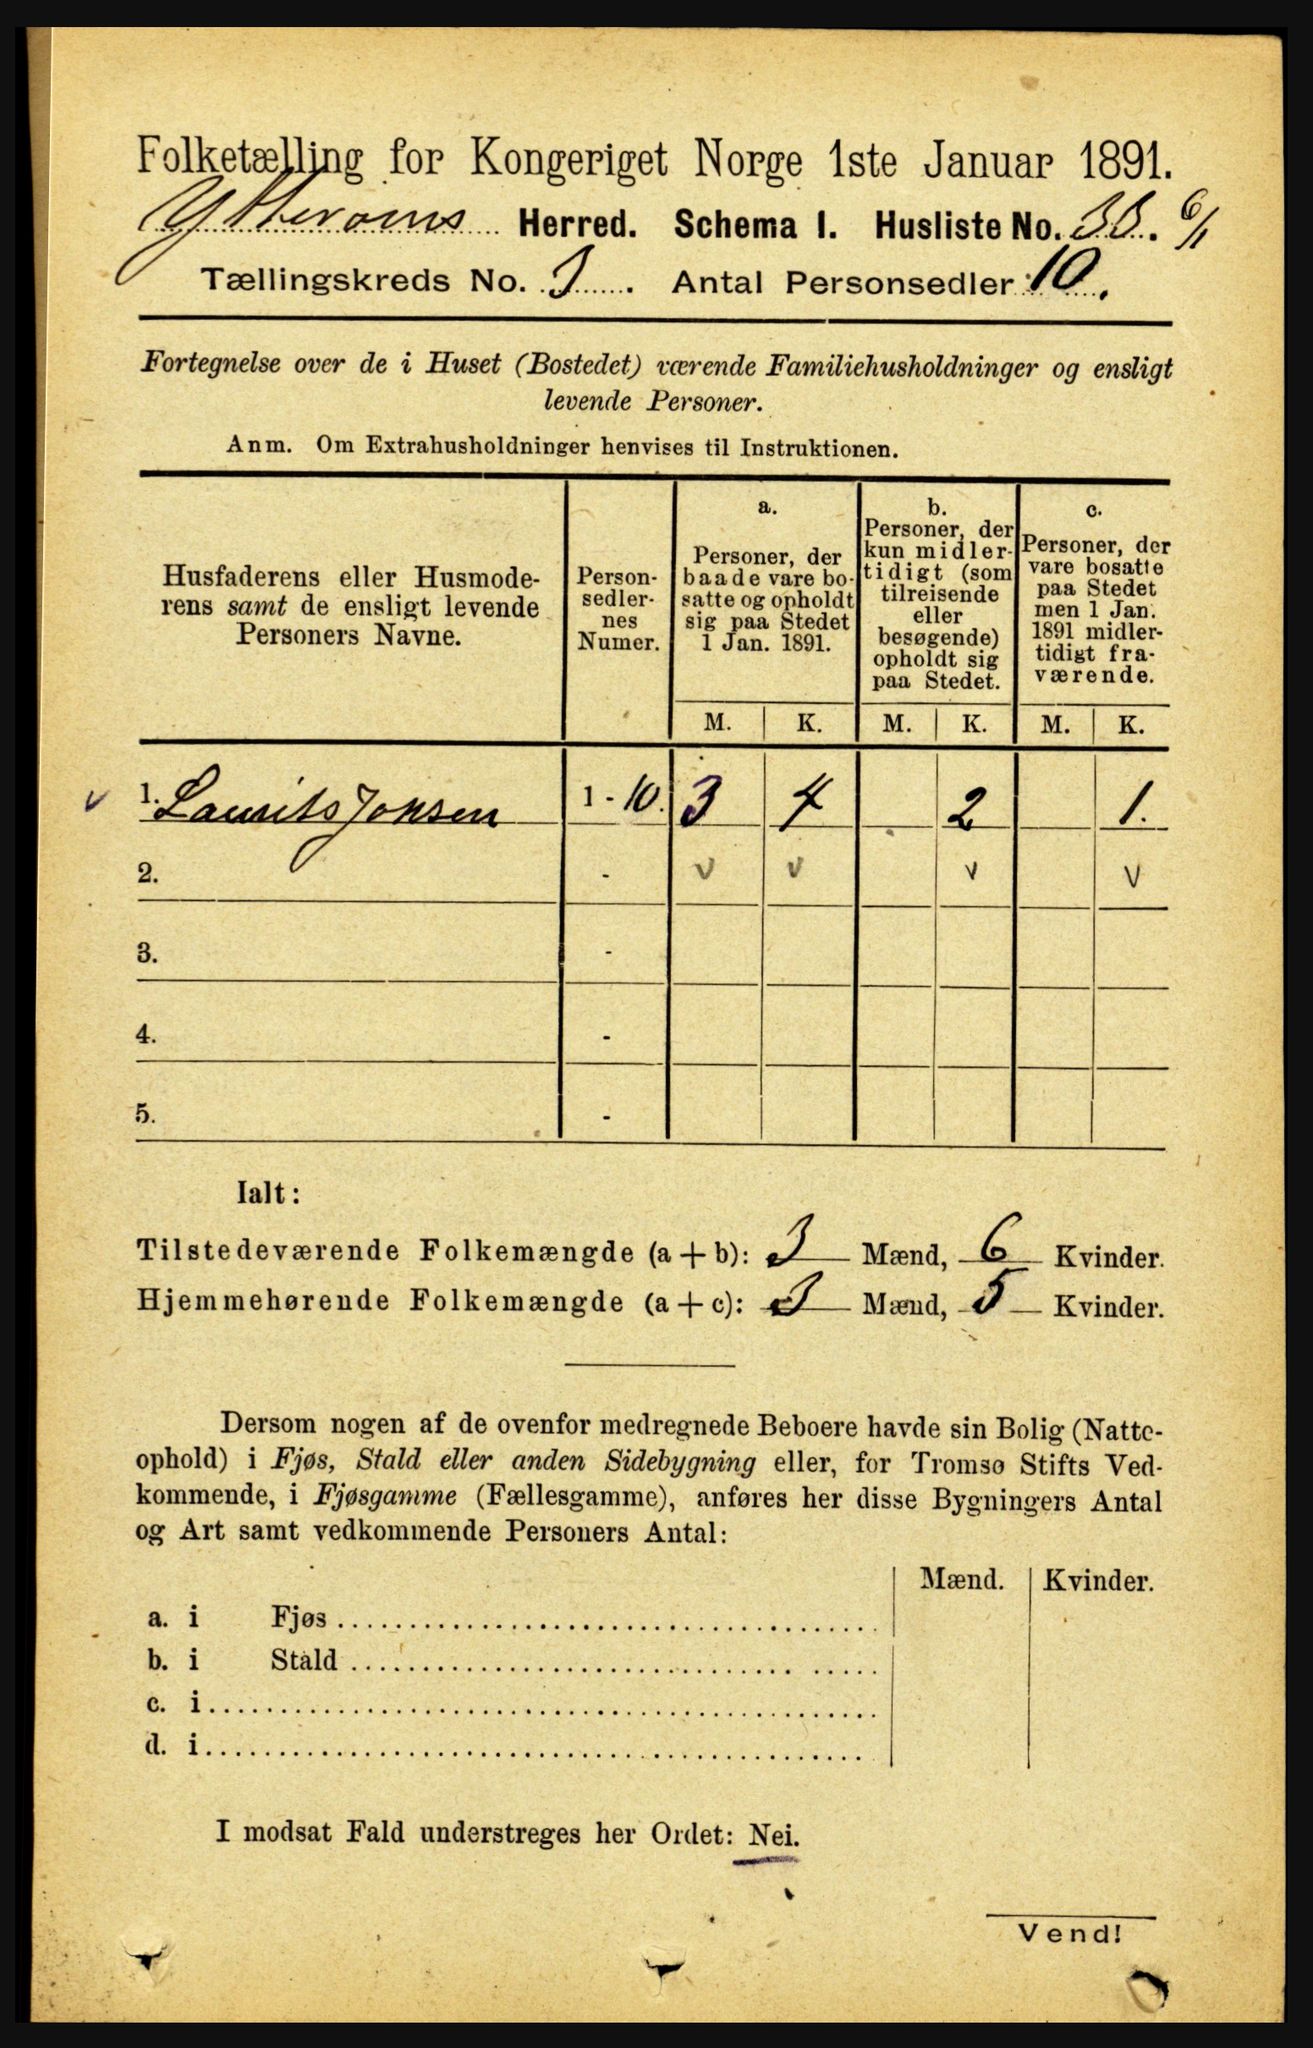 Folketælling for Kongeriget Norge 1ste Januar 1891.
Herred. Schema I. Husliste No. 33. 6/1
Tællingskreds No. 3. Antal Personsedler: 10.
Fortegnelse over de i Huset (Bostedet) værende Familiehusholdninger og ensligt
levende Personer.
Anm. Om Extrahusholdninger henvises til Instruktionen.
Husfaderens eller Husmode-
rens samt de ensligt levende
Personers Navne.
Person-
sedler-
nes
Numer.
a.
Personer, der
baade vare bo-
satte og opholdt
sig paa Stedet
1 Jan. 1891.
b.
Personer, der
kun midler-
tidigt (som
tilreisende
eller
besøgende)
opholdt sig
paa Stedet.
c.
Personer, der
vare bosatte
paa Stedet
men 1 Jan.
1891 midler-
tidigt fra-
værende.
M. K. M. K. M. K.
v 1. Laurits Jonsen 1 - 10. 3 4 2 1.
2. - v v v v
3. -
4. -
5. -
Ialt:
Tilstedeværende Folkemængde (a + b): 3 Mænd, 6 Kvinder.
Hjemmehørende Folkemængde (a + c): 3 Mænd, 5 Kvinder.
Dersom nogen af de ovenfor medregnede Beboere havde sin Bolig (Natte-
ophold) i Fjøs, Stald eller anden Sidebygning eller, for Tromsø Stifts Ved-
kommende, i Fjøsgamme (Fællesgamme), anføres her disse Bygningers Antal
og Art samt vedkommende Personers Antal:
Mænd. Kvinder.
a. i Fjøs
b. i Stald
c. i
d. i
I modsat Fald understreges her Ordet: Nei.
Vend!